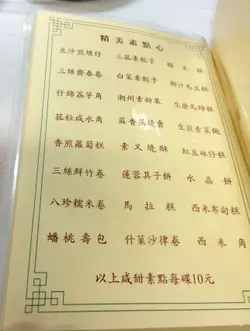 精美素點心
豆沙煎堆仔 三菇素餃子 棗王糕
三絲齋春卷 白菜素餃子 椰汁馬豆糕
什錦荔芋角 潮州素粉果 生磨馬蹄糕
菇粒咸水角 生煎素菜飽
香煎蘿蔔糕 素叉燒酥 紅豆砵仔糕
三絲鮮竹卷 蓮蓉其子餅 水晶餅
八珍糯米卷 馬拉糕 西米布甸糕
蟠桃壽包 什菓沙律卷 西米角
以上咸甜素點每碟10元